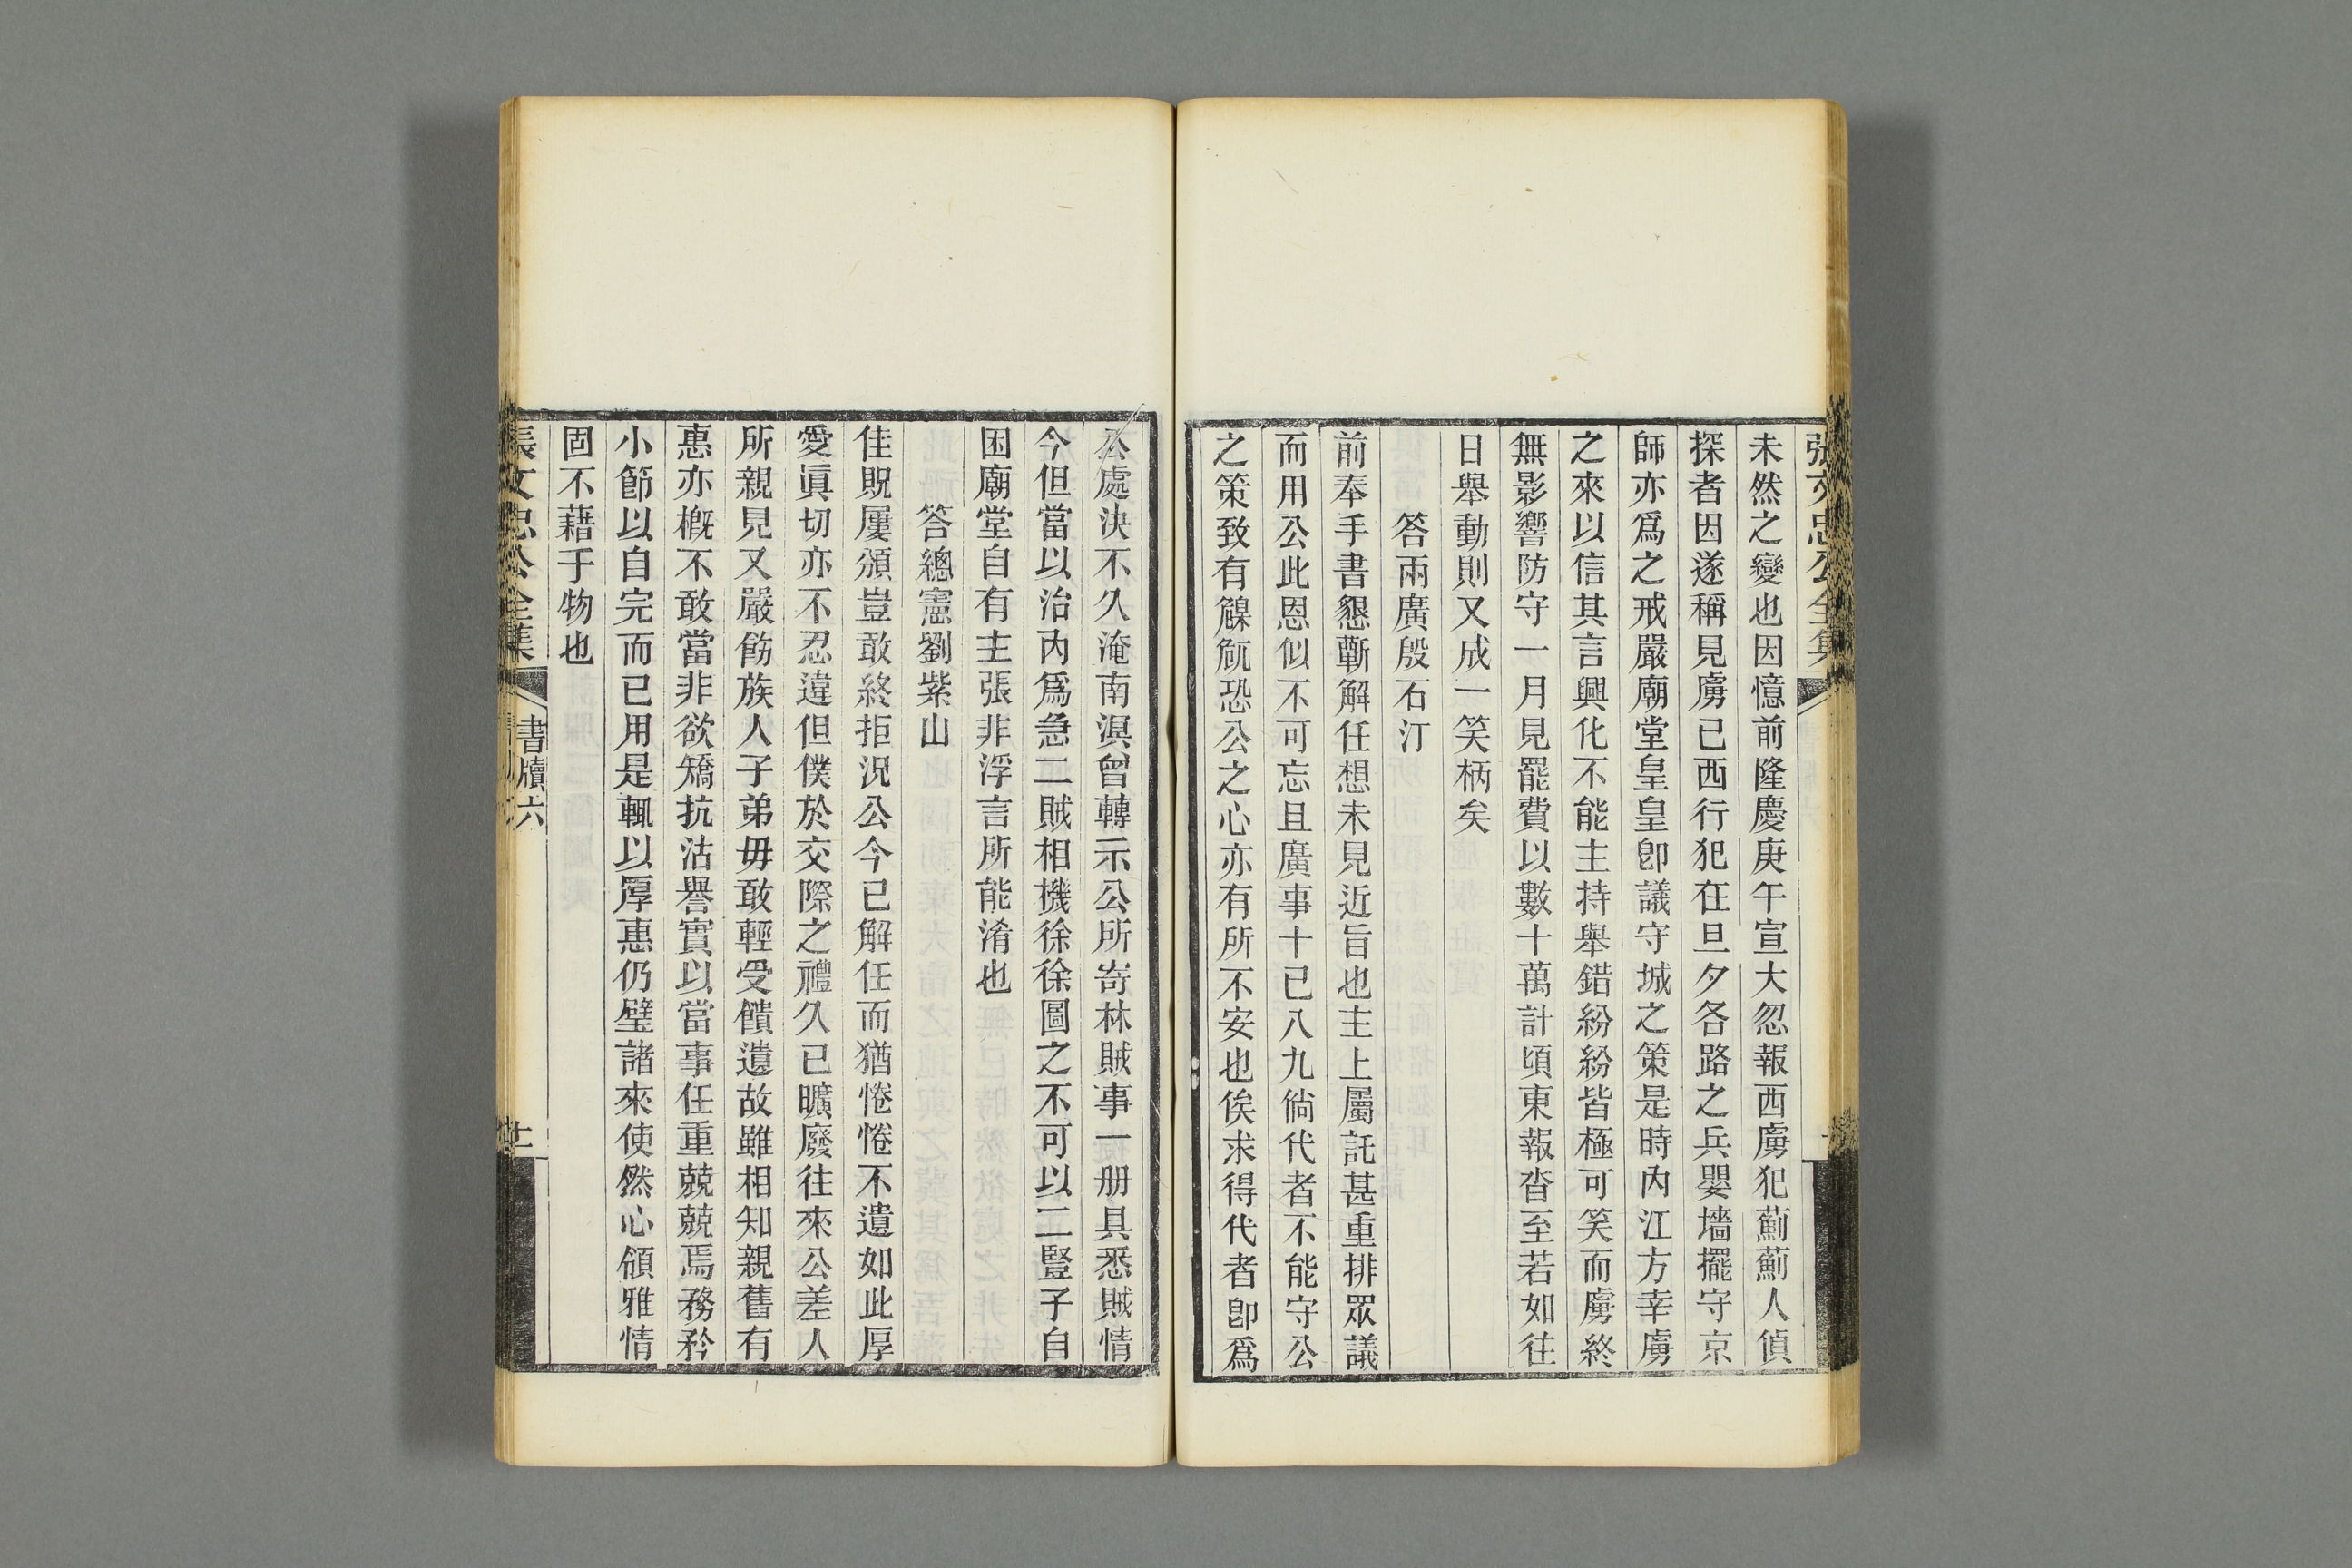 張文忠公全集
未然之變也因憶前隆慶庚午宣大忽報西虜犯薊薊人偵
探者因遂稱見虜已西行犯在旦夕各路之兵嬰墻擺守京
師亦爲之戒嚴廟堂皇皇卽議守城之策是時內江方幸虜
之來以信其言興化不能主持舉錯紛紛皆極可笑而虜終
無影響防守一月見罷費以數十萬計頃東報沓至若如往
日舉動則又成一笑柄矣
答兩廣殷石汀
前奉手書懇蘄解任想未見近旨也主上屬託甚重排眾議
而用公此恩似不可忘且廣事十已八九倘代者不能守公
之策致有臲卼恐公之心亦有所不安也俟求得代者卽爲
公處決不久淹南溟曾轉示公所寄林賊事一册具悉賊情
今但當以治內爲急二賊相機徐徐圖之不可以二豎子自
困廟堂自有主張非浮言所能淆也
答總憲劉紫山
佳貺屢頒豈敢終拒況公今已解任而猶惓惓不遺如此厚
愛眞切亦不忍違但僕於交際之禮久已曠廢往來公差人
所親見又嚴飭族人子弟毋敢輕受饋遺故雖相知親舊有
惠亦概不敢當非欲矯抗沽譽實以當事任重兢兢焉務矜
小節以自完而已用是輒以厚惠仍璧諸來使然心領雅情
固不藉于物也
張文忠公全集
書牘六